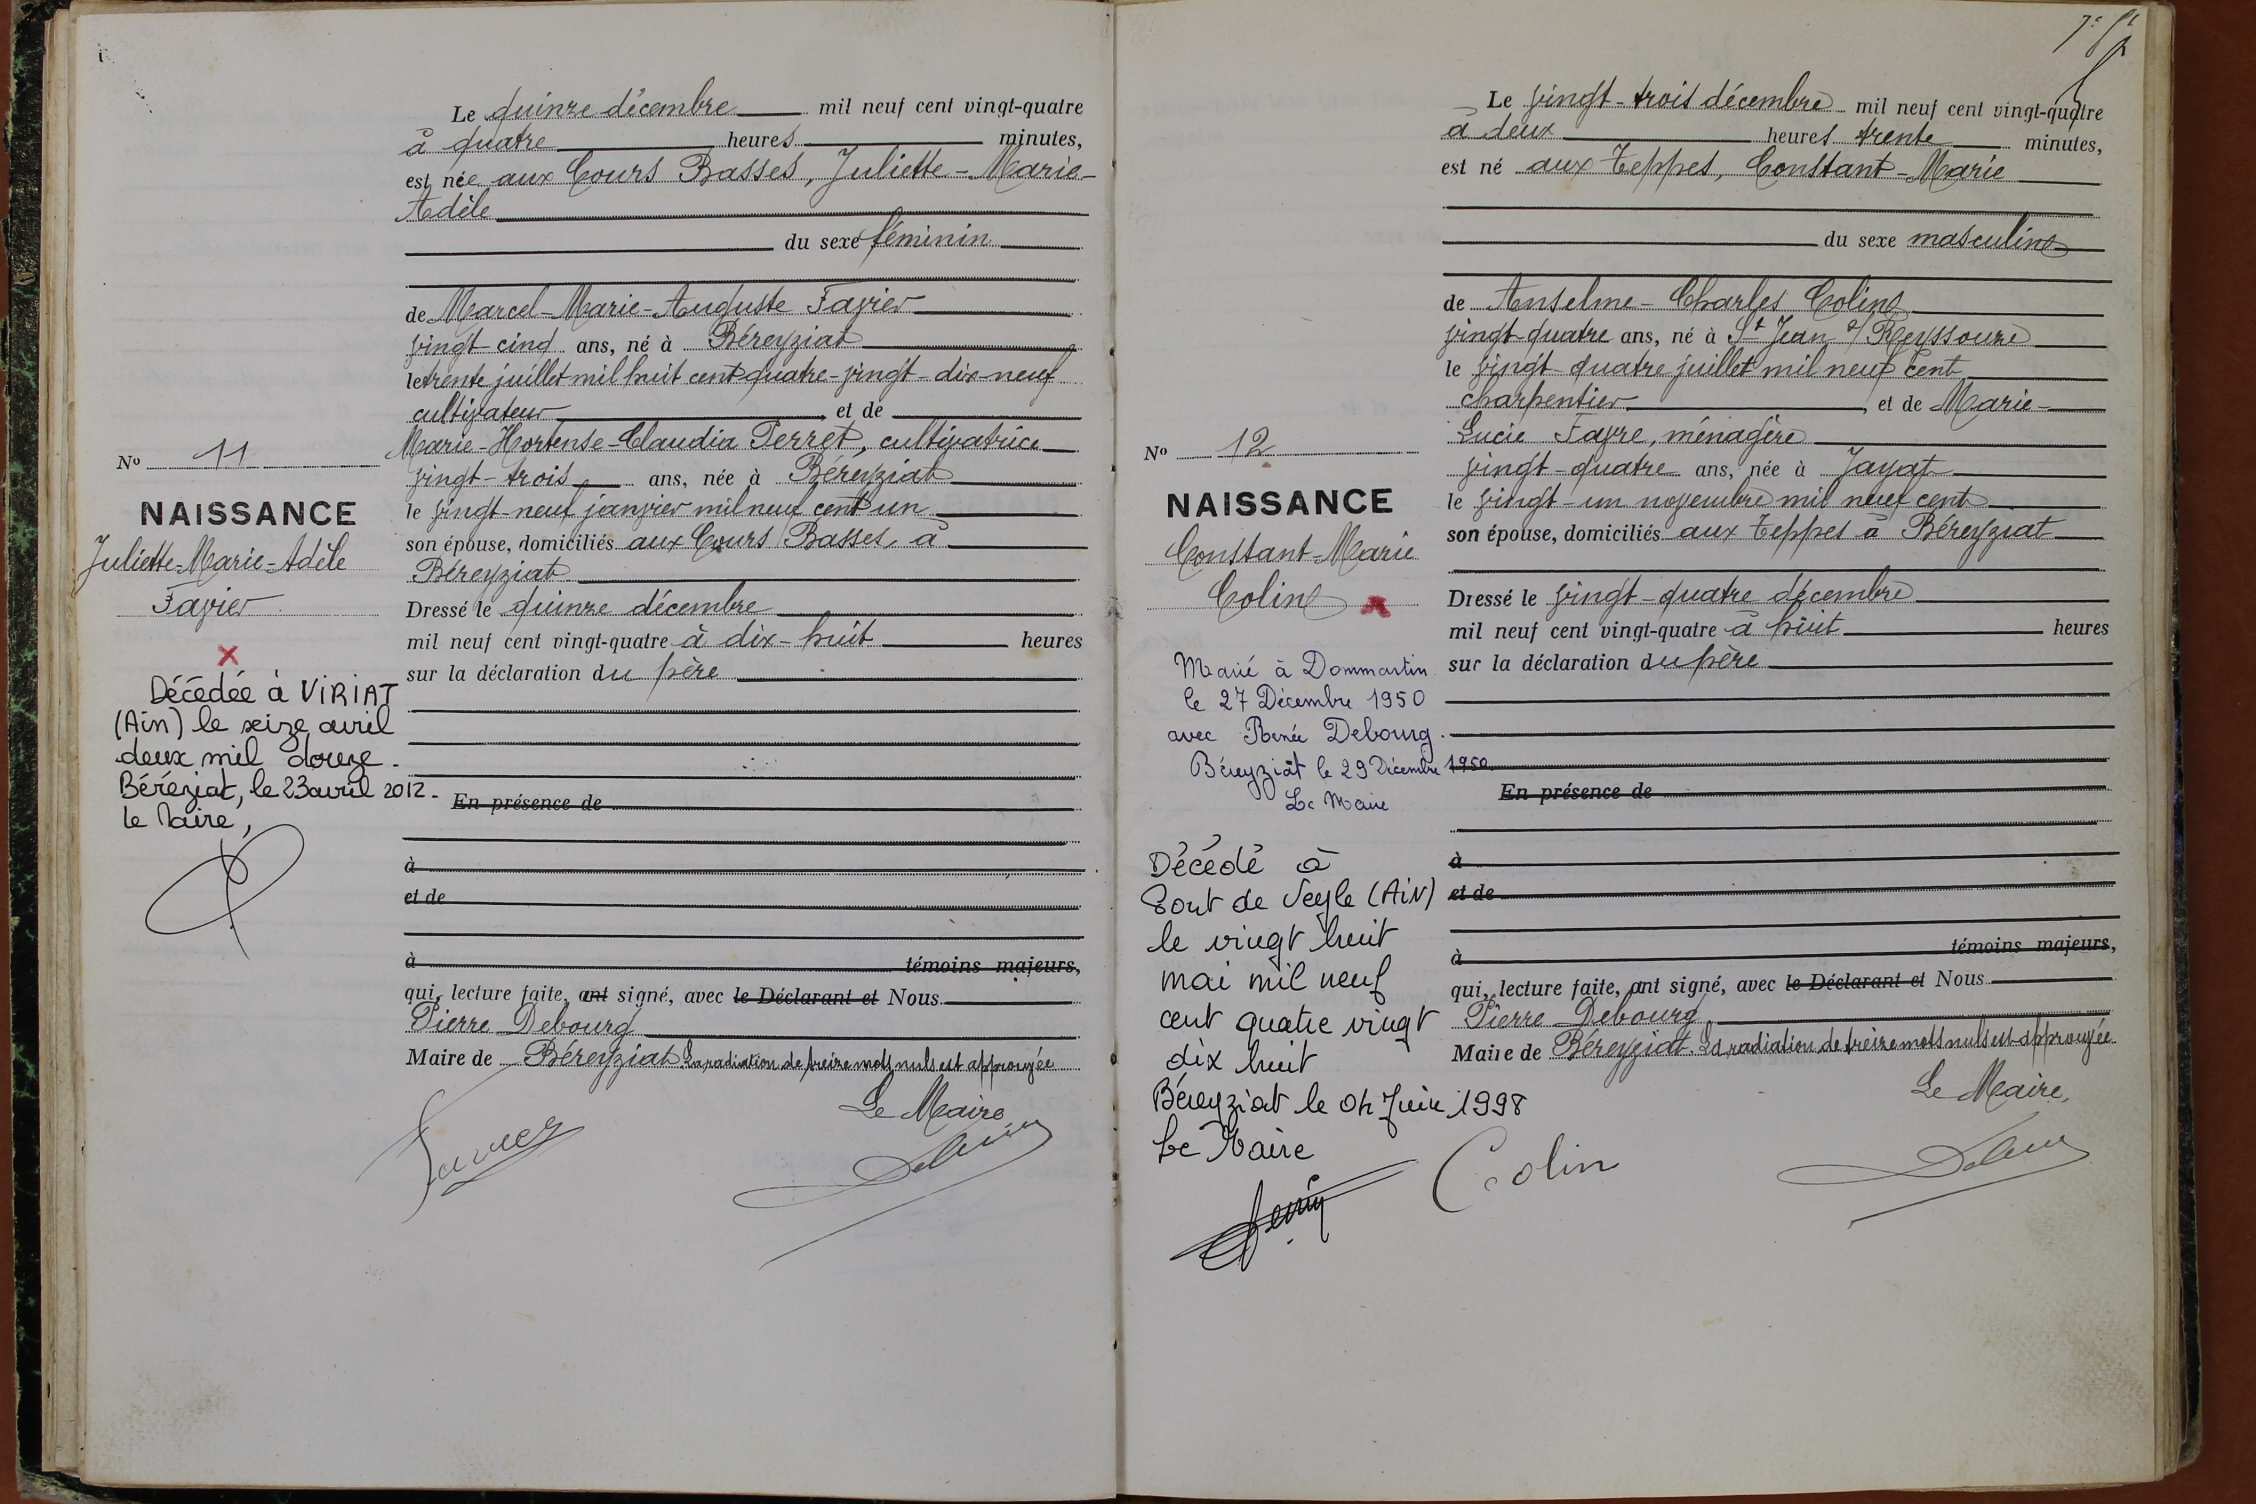 Le quinze décembre mil neuf cent vingt-quatre
à quatre heures minutes,
est née aux Cours Basses, Juliette-Marie-
Adèle
du sexe féminin
de Marcel-Marie-Auguste Favier
vingt cinq ans, né à Béreyziat
le trente juillet mil huit cent quatre-vingt-dix-neuf
cultivateur et de
Marie-Hortense-Claudia Perret, cultivatrice
vingt-trois ans, née à Béreyziat
le vingt-neuf janvier mil neuf cent un
son épouse, domiciliés aux Cours Basses, à
Béreyziat
Dressé le quinze décembre
mil neuf cent vingt-quatre à dix-huit heures
sur la déclaration du père
En présence de
à
et de
à témoins majeurs,
qui, lecture faite, ont signé, avec le Déclarant et Nous
Pierre Debourg
Maire de Béreyziat. La radiation de treize mots nuls est approuvée
Le Maire
Favier
No 11
NAISSANCE
Juliette-Marie-Adèle
Favier
Décédée à VIRIAT
(Ain) le seize avril
deux mil douze.
Béréziat, le 23 avril 2012.
le Maire,
7e
Le vingt-trois décembre mil neuf cent vingt-quatre
à deux heures trente minutes,
est né aux Teppes, Constant-Marie
du sexe masculin
de Anselme-Charles Colin
vingt-quatre ans, né à St Jean s/ Reyssouze
le vingt-quatre juillet mil neuf cent
charpentier et de Marie-
Lucie Favre, ménagère
vingt-quatre ans, née à Jayat
le vingt-un novembre mil neuf cent
son épouse, domiciliés aux Teppes à Béreyziat
Dressé le vingt-quatre décembre
mil neuf cent vingt-quatre à huit heures
sur la déclaration du père
En présence de
à
et de
à témoins majeurs,
qui, lecture faite, ont signé, avec le Déclarant et Nous
Pierre Debourg
Maire de Béreyziat. La radiation de treize mots nuls est approuvée
Le Maire,
Colin
No 12
NAISSANCE
Constant-Marie
Colin
Marié à Dommartin
le 27 Décembre 1950
avec Renée Debourg.
Béreyziat le 29 Décembre 1950.
Le Maire
Décédé à
Pont de Veyle (AiN)
le vingt huit
mai mil neuf
cent quatre vingt
dix huit
Béreyziat le 04 Juin 1998
Le Maire